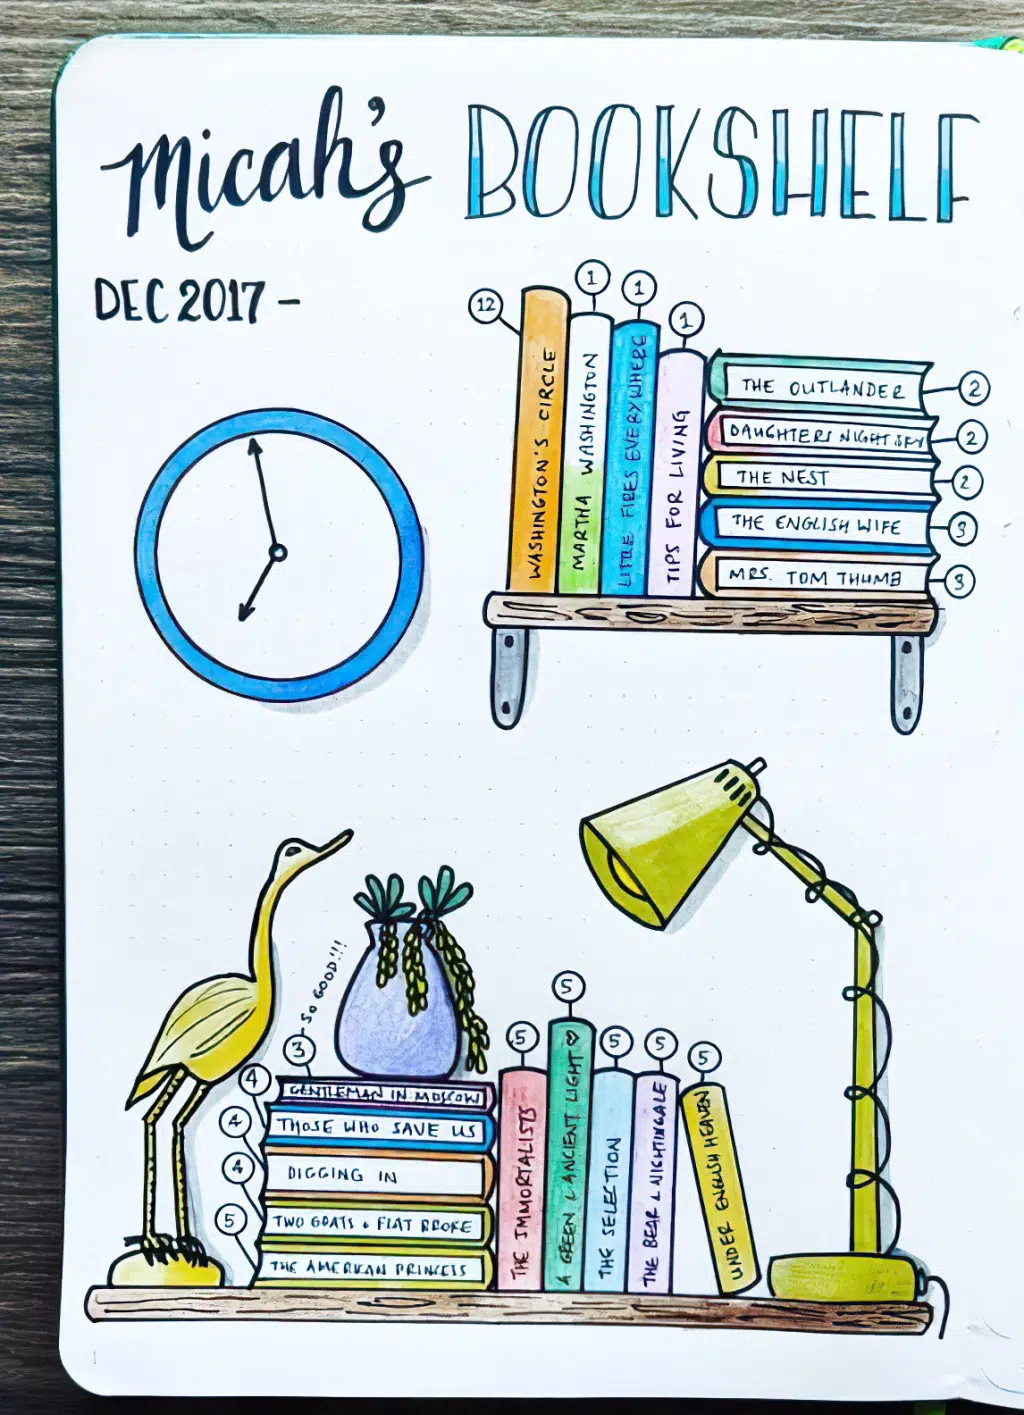 Micah's BOOKSHELF
DEC 2017 -
12
1
1
1
WASHINGTON'S CIRCLE
MARTHA WASHINGTON
LITTLE FIRES EVERYWHERE
TIPS FOR LIVING
THE OUTLANDER
2
DAUGHTERS NIGHT SKY
2
THE NEST
2
THE ENGLISH WIFE
3
MRS. TOM THUMB
3
SO GOOD!!!
3
4
4
4
5
GENTLEMAN IN MOSCOW
THOSE WHO SAVE US
DIGGING IN
TWO GOATS & FLAT BROKE
THE AMERICAN PRINCESS
5
5
5
5
5
THE IMMORTALISTS
A GREEN & ANCIENT LIGHT ♡
THE SELECTION
THE BEAR & NIGHTINGALE
UNDER ENGLISH HEAVEN